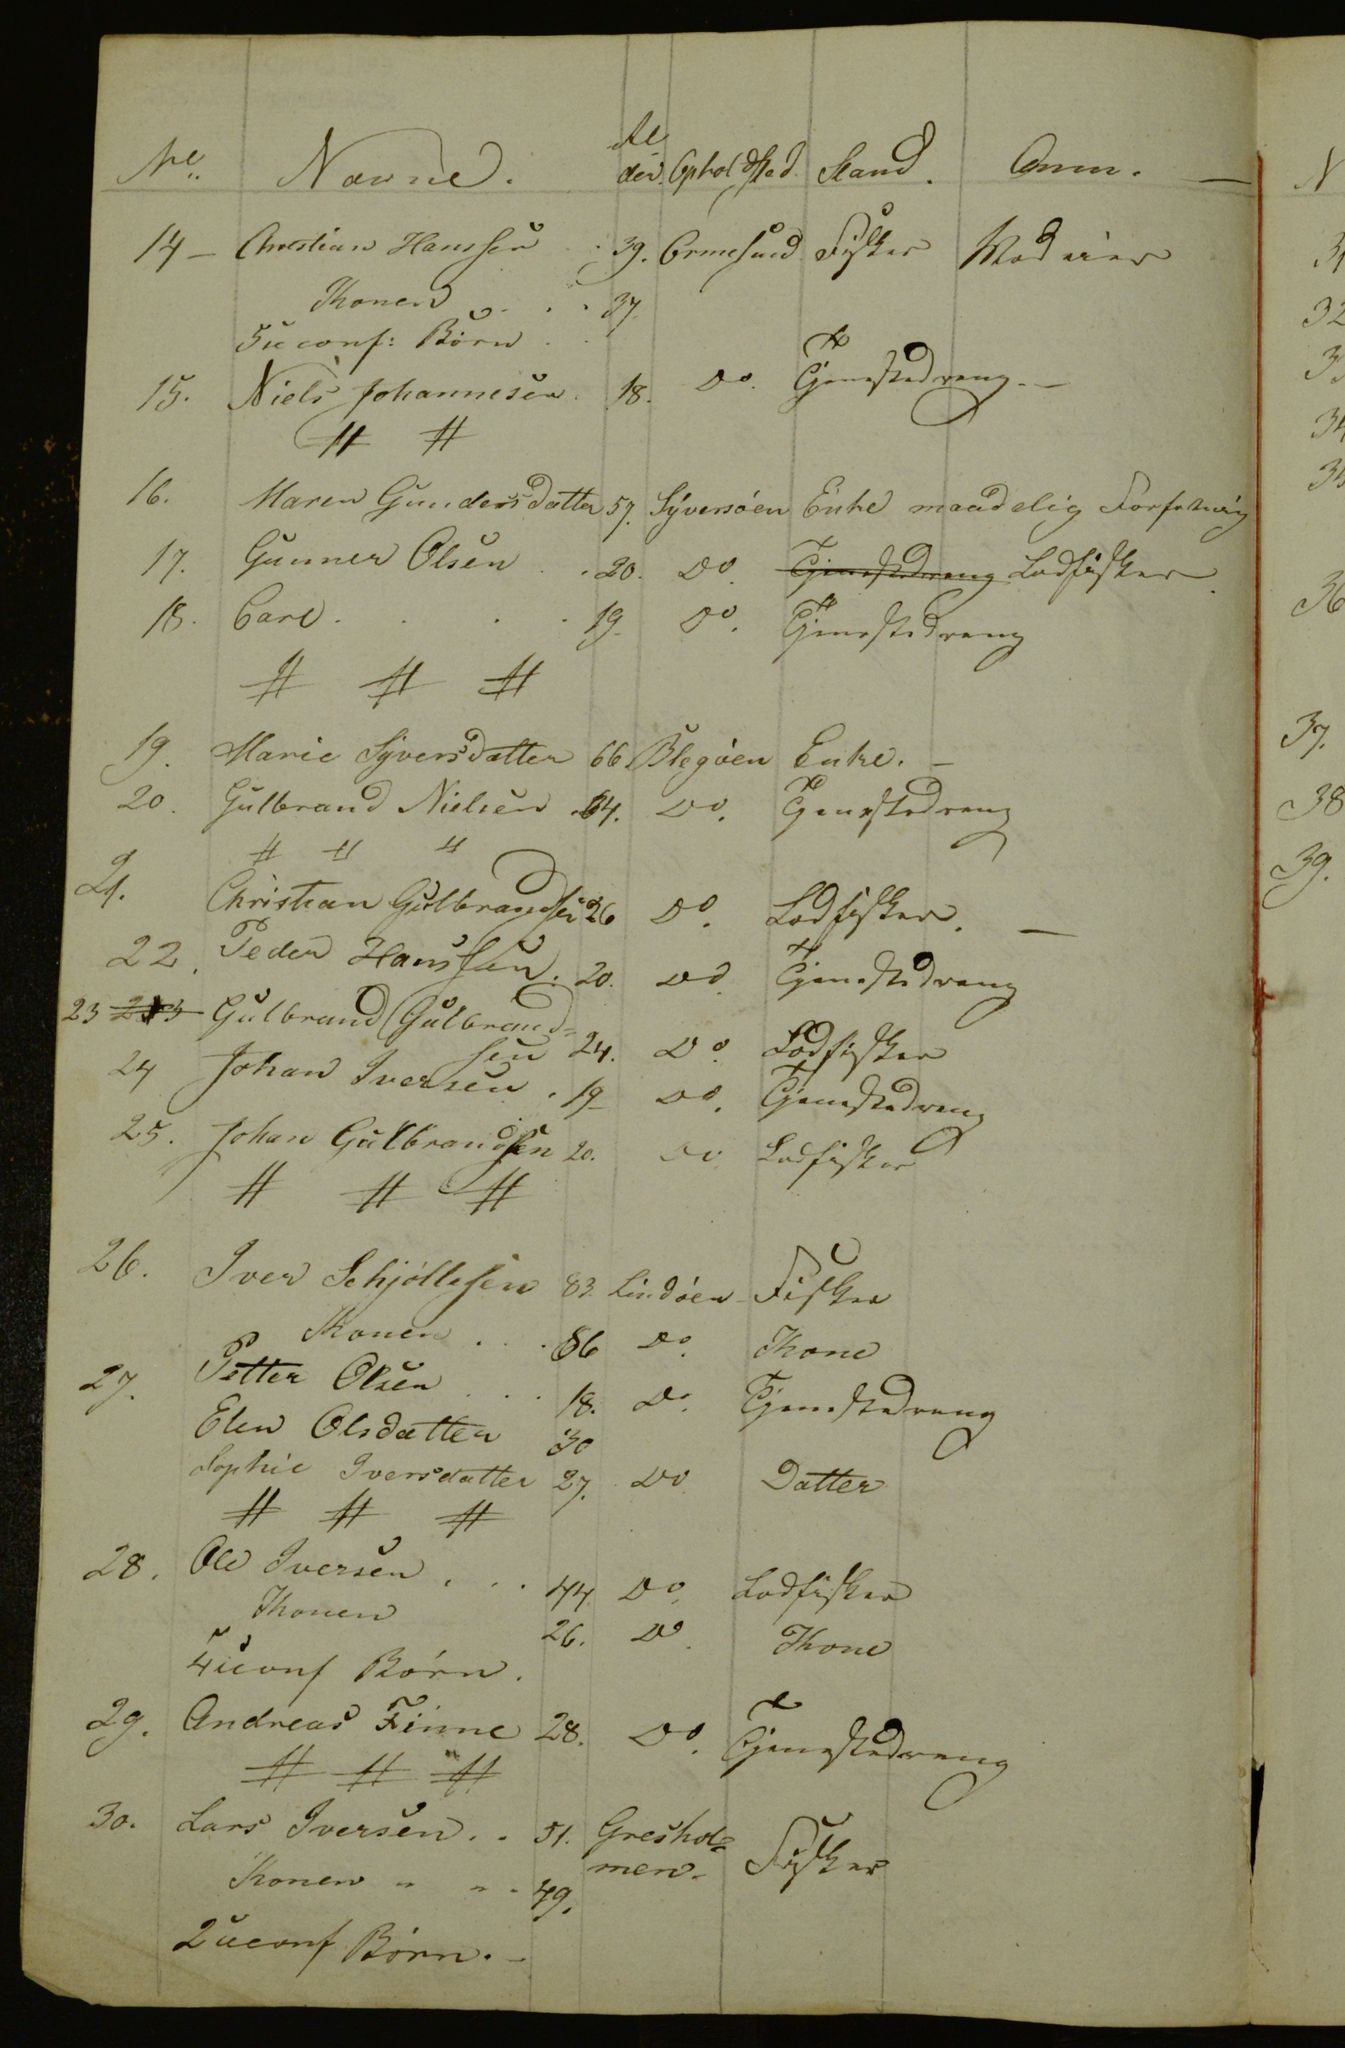 No. Navne. Al der. Opholdsted. Stand. Anm. —
14 – Christian Hanssen . 39. Ormesund Fisker
Konen . . . 37.
5 uconf: Børn . .
15. Niels Johannesen. 18. Do. Tjenestedreng. —
# #
16. Maren Gundersdatter 57. Syversøen Enke maadelig Forfatning
17. Gunner Olsen . . 20. Do. Tjenestedreng Lodfisker.
18. Carl . . . . 19. Do. Tjenestedreng
# # #
19. Marie Syversdatter 66 Blegøen Enke. –
20. Gulbrand Nielsen . 64. Do. Tjenestedreng
# # #
21. Christian Gulbrandsen 26 Do. Lodfisker. —
22. Peder Hanssen . 20. Do Tjenestedreng
23 213 Gulbrand Gulbrand=
sen 24. Do. Lodfisker
24 Johan Iversen . 19 Do. Tjenestedreng
25. Johan Gulbrandsen 20. Do Lodfisker
# # #
26. Iver Schjøllesen 83. Lindøen Fisker
Konen . . . 86 Do. Kone
27. Petter Olsen . . . 18. Do. Tjenestedreng
Elen Olsdatter 30
Sophie Iversdatter 27. Do Datter
# # #
28. Ole Iversen . . . 44 Do. Lodfisker
Konen 26. Do. Kone
4 uconf Børn.
29. Andreas Finne 28. Do. Tjenestedreng
# # #
30. Lars Iversen . . 51. Greshol=
men. Fisker
Konen " " - 49.
2 uconf Børn. –
N
31
32
33
34
35
36
37.
38
39.